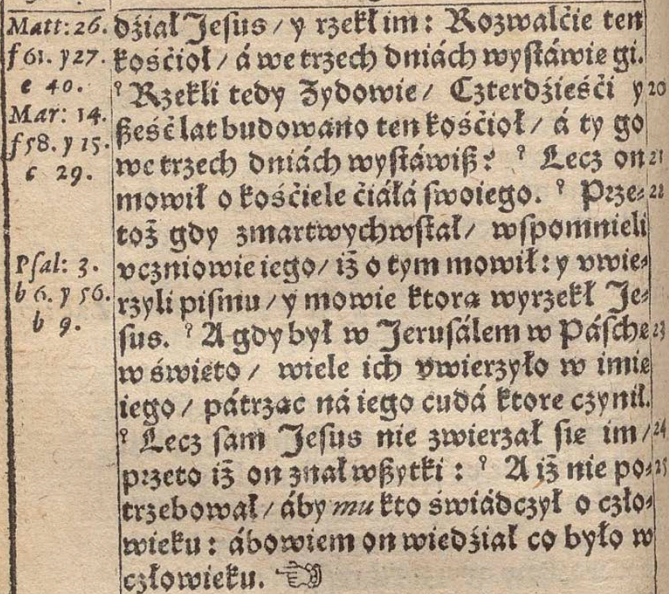 Matt: 26.
f 61. y 27.
e 40.
Mar: 14.
f 58. y 15.
c 29.
Psal: 3.
b 6. y 56.
b 9.
dźiał Jesus / y rzekł im : Rozwalćie ten
kośćioł / á we trzech dniách wystáwię gi.
Rzekli tedy Żydowie / Czterdźieśći y 20
sześć lat budowano ten kośćioł / á ty go
we trzech dniách wystáwisz? Lecz on 21
mowił o kośćiele ćiáłá swoiego. Prze- 22
toż gdy zmartwychwstał / wspomnieli
vczniowie iego / iż o tym mowił : y vwie-
rzyli pismu / y mowie ktorą wyrzekł Je-
sus. A gdy był w Jerusálem w Páschę 23
w święto / wiele ich vwierzyło w imię
iego / pátrząc ná iego cudá ktore czynił.
Lecz sam Jesus nie zwierzał się im / 24
przeto iż on znał wszytki : A iż nie po- 25
trzebował / áby mu kto świádczył o czło-
wieku : ábowiem on wiedźiał co było w
człowieku. ☜